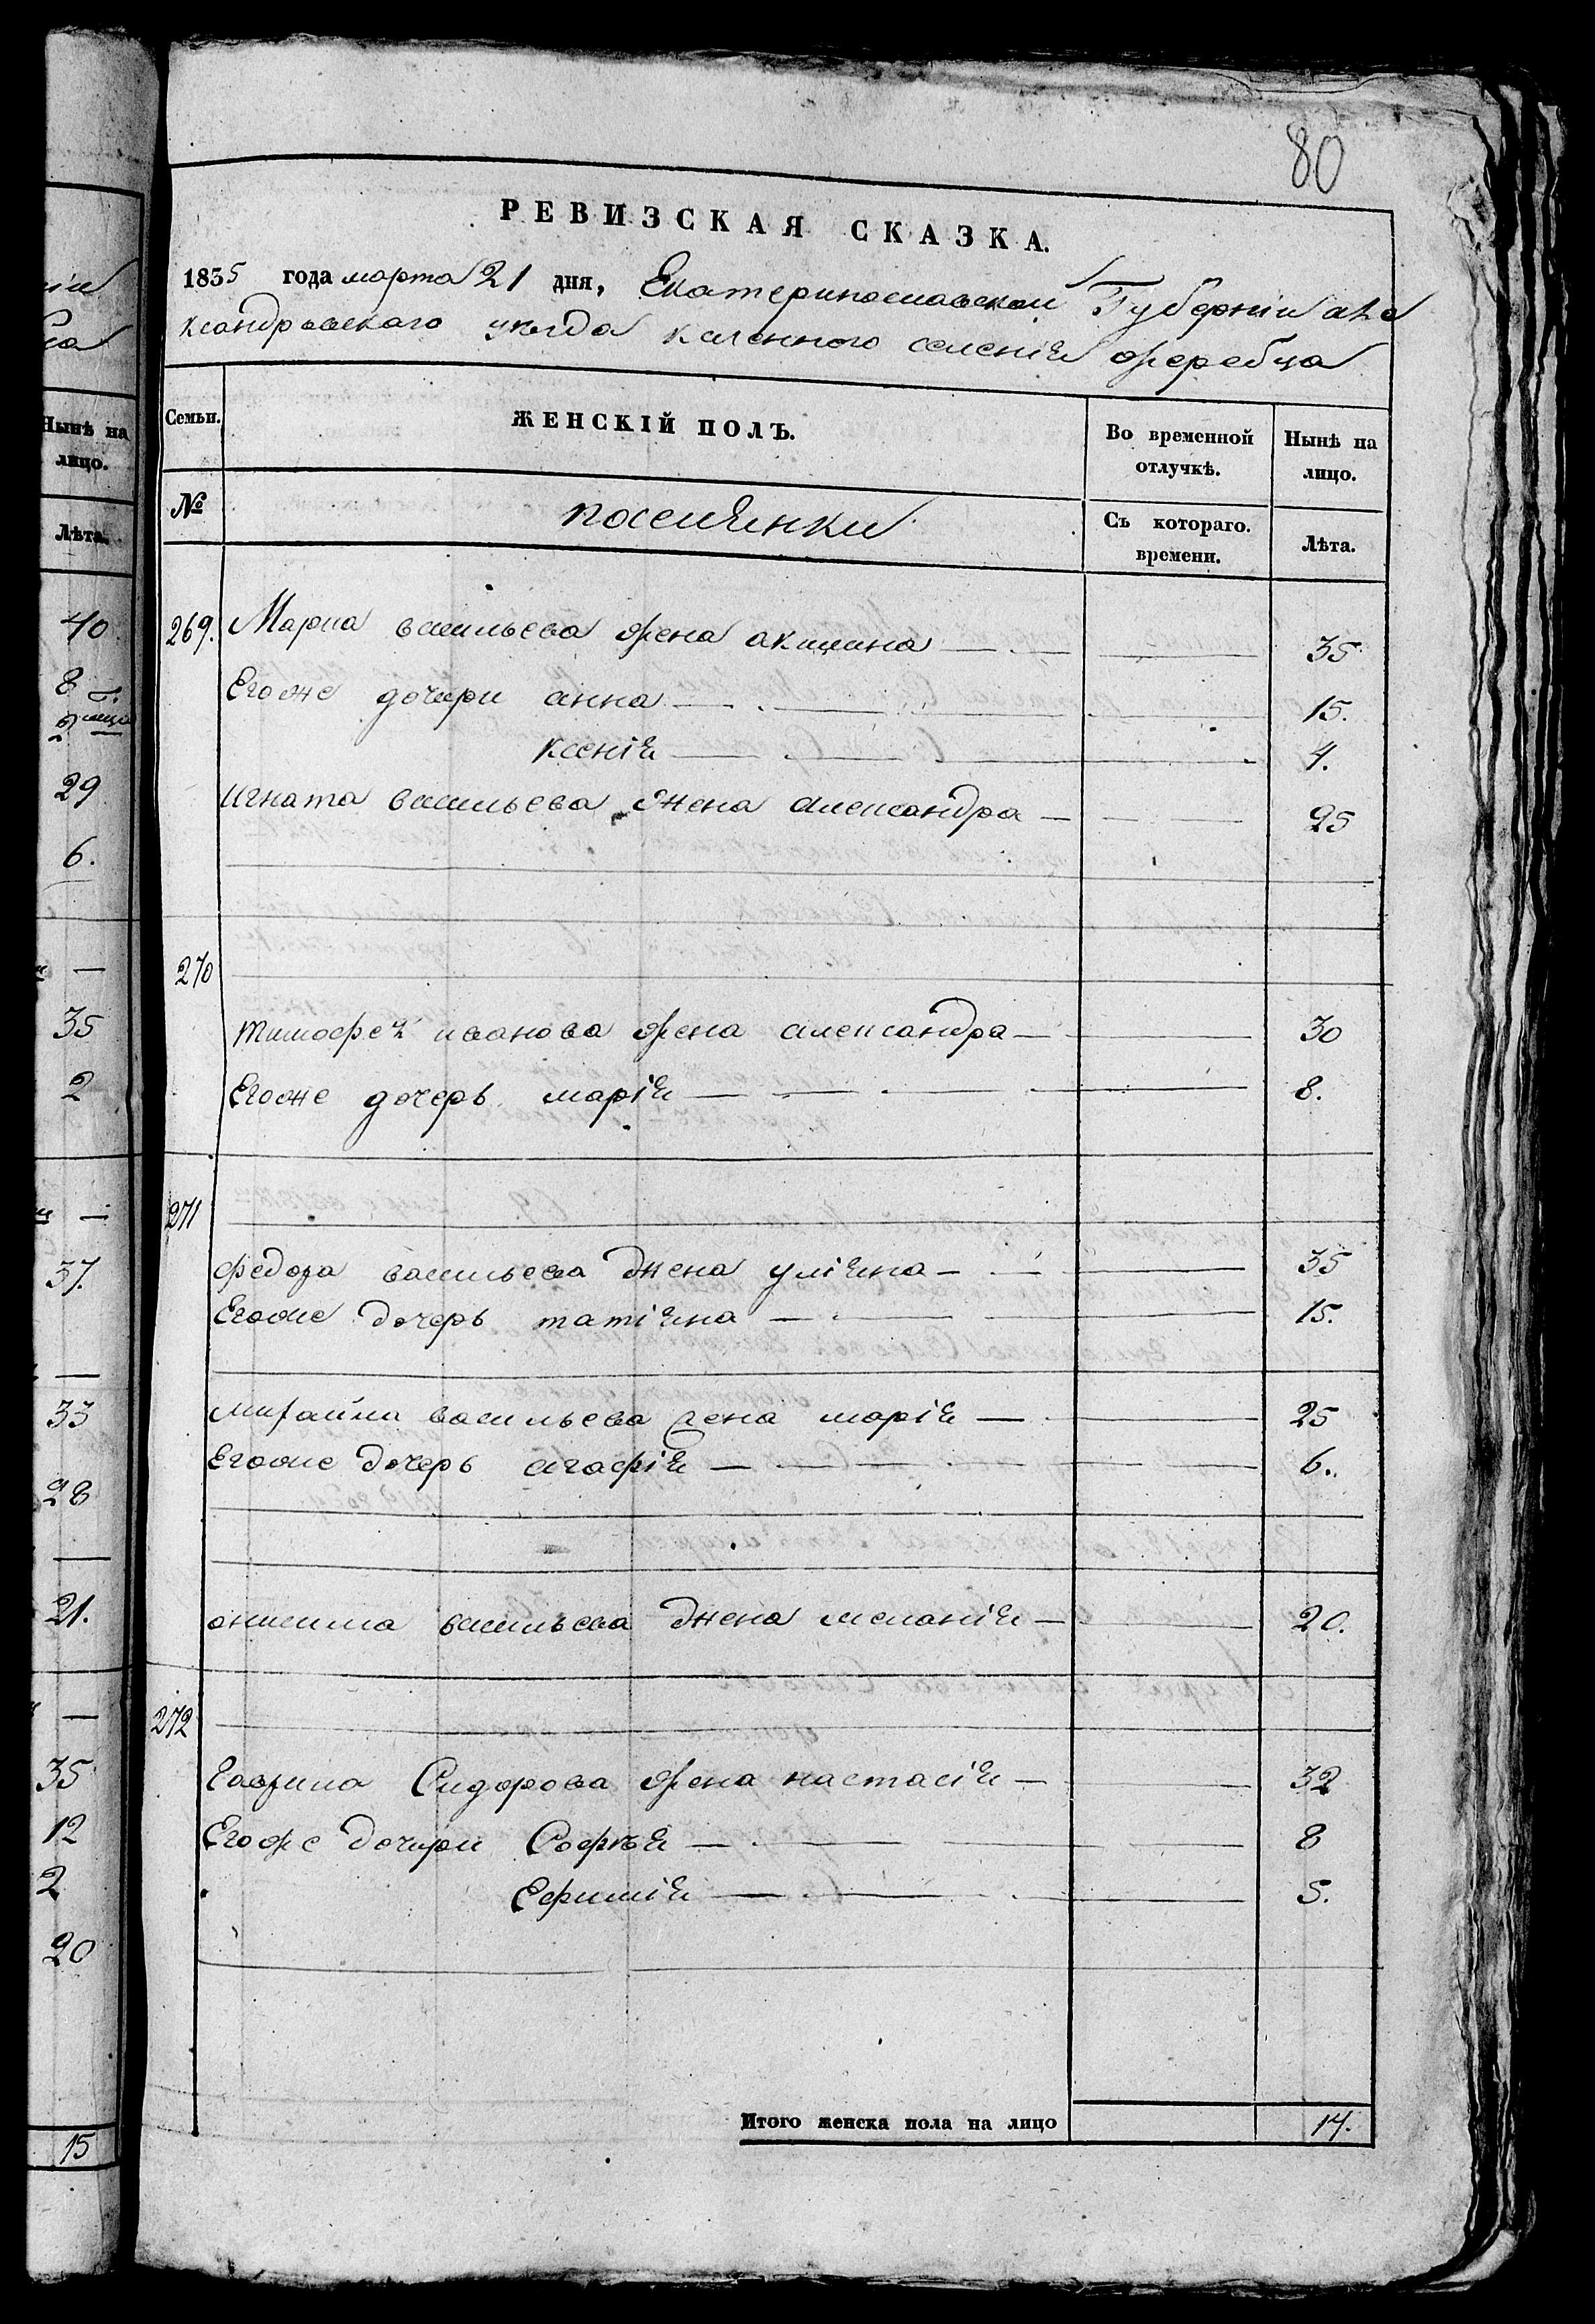 80
РЕВИЗСКАЯ СКАЗКА.
1835 года марта 21 дня, Екатеринославской Губерніи але
ксандровскаго уезда казенного селенія жеребца
Семьи. ЖЕНСКІЙ ПОЛЪ. Во временной отлучкѣ. Нынѣ на лицо.
№ поселянки Съ котораго. времени. Лѣта.
269. Мариа васильева жена акилина 35
Егоже дочери анна 15.
ксенія 4.
Игната васильева жена александра 25
270
тимофея иванова жена александра 30
Егоже дочерь марія 8.
271
федора васильева жена уліяна 35
Егоже дочерь татіяна 15.
михайла васильева жена марія 25
Егоже дочерь агафія 6.
онисима васильева жена меланія 20.
272
Гаврила Сидорова жена настасія 32
Егоже дочери Софья 8
Ефимія 5.
Итого женска пола на лицо 14.
Нынѣ на
лицо.
Лѣта.
40
8
2
29
6.
35
2
37.
33
28
21.
35
12
2
20
15